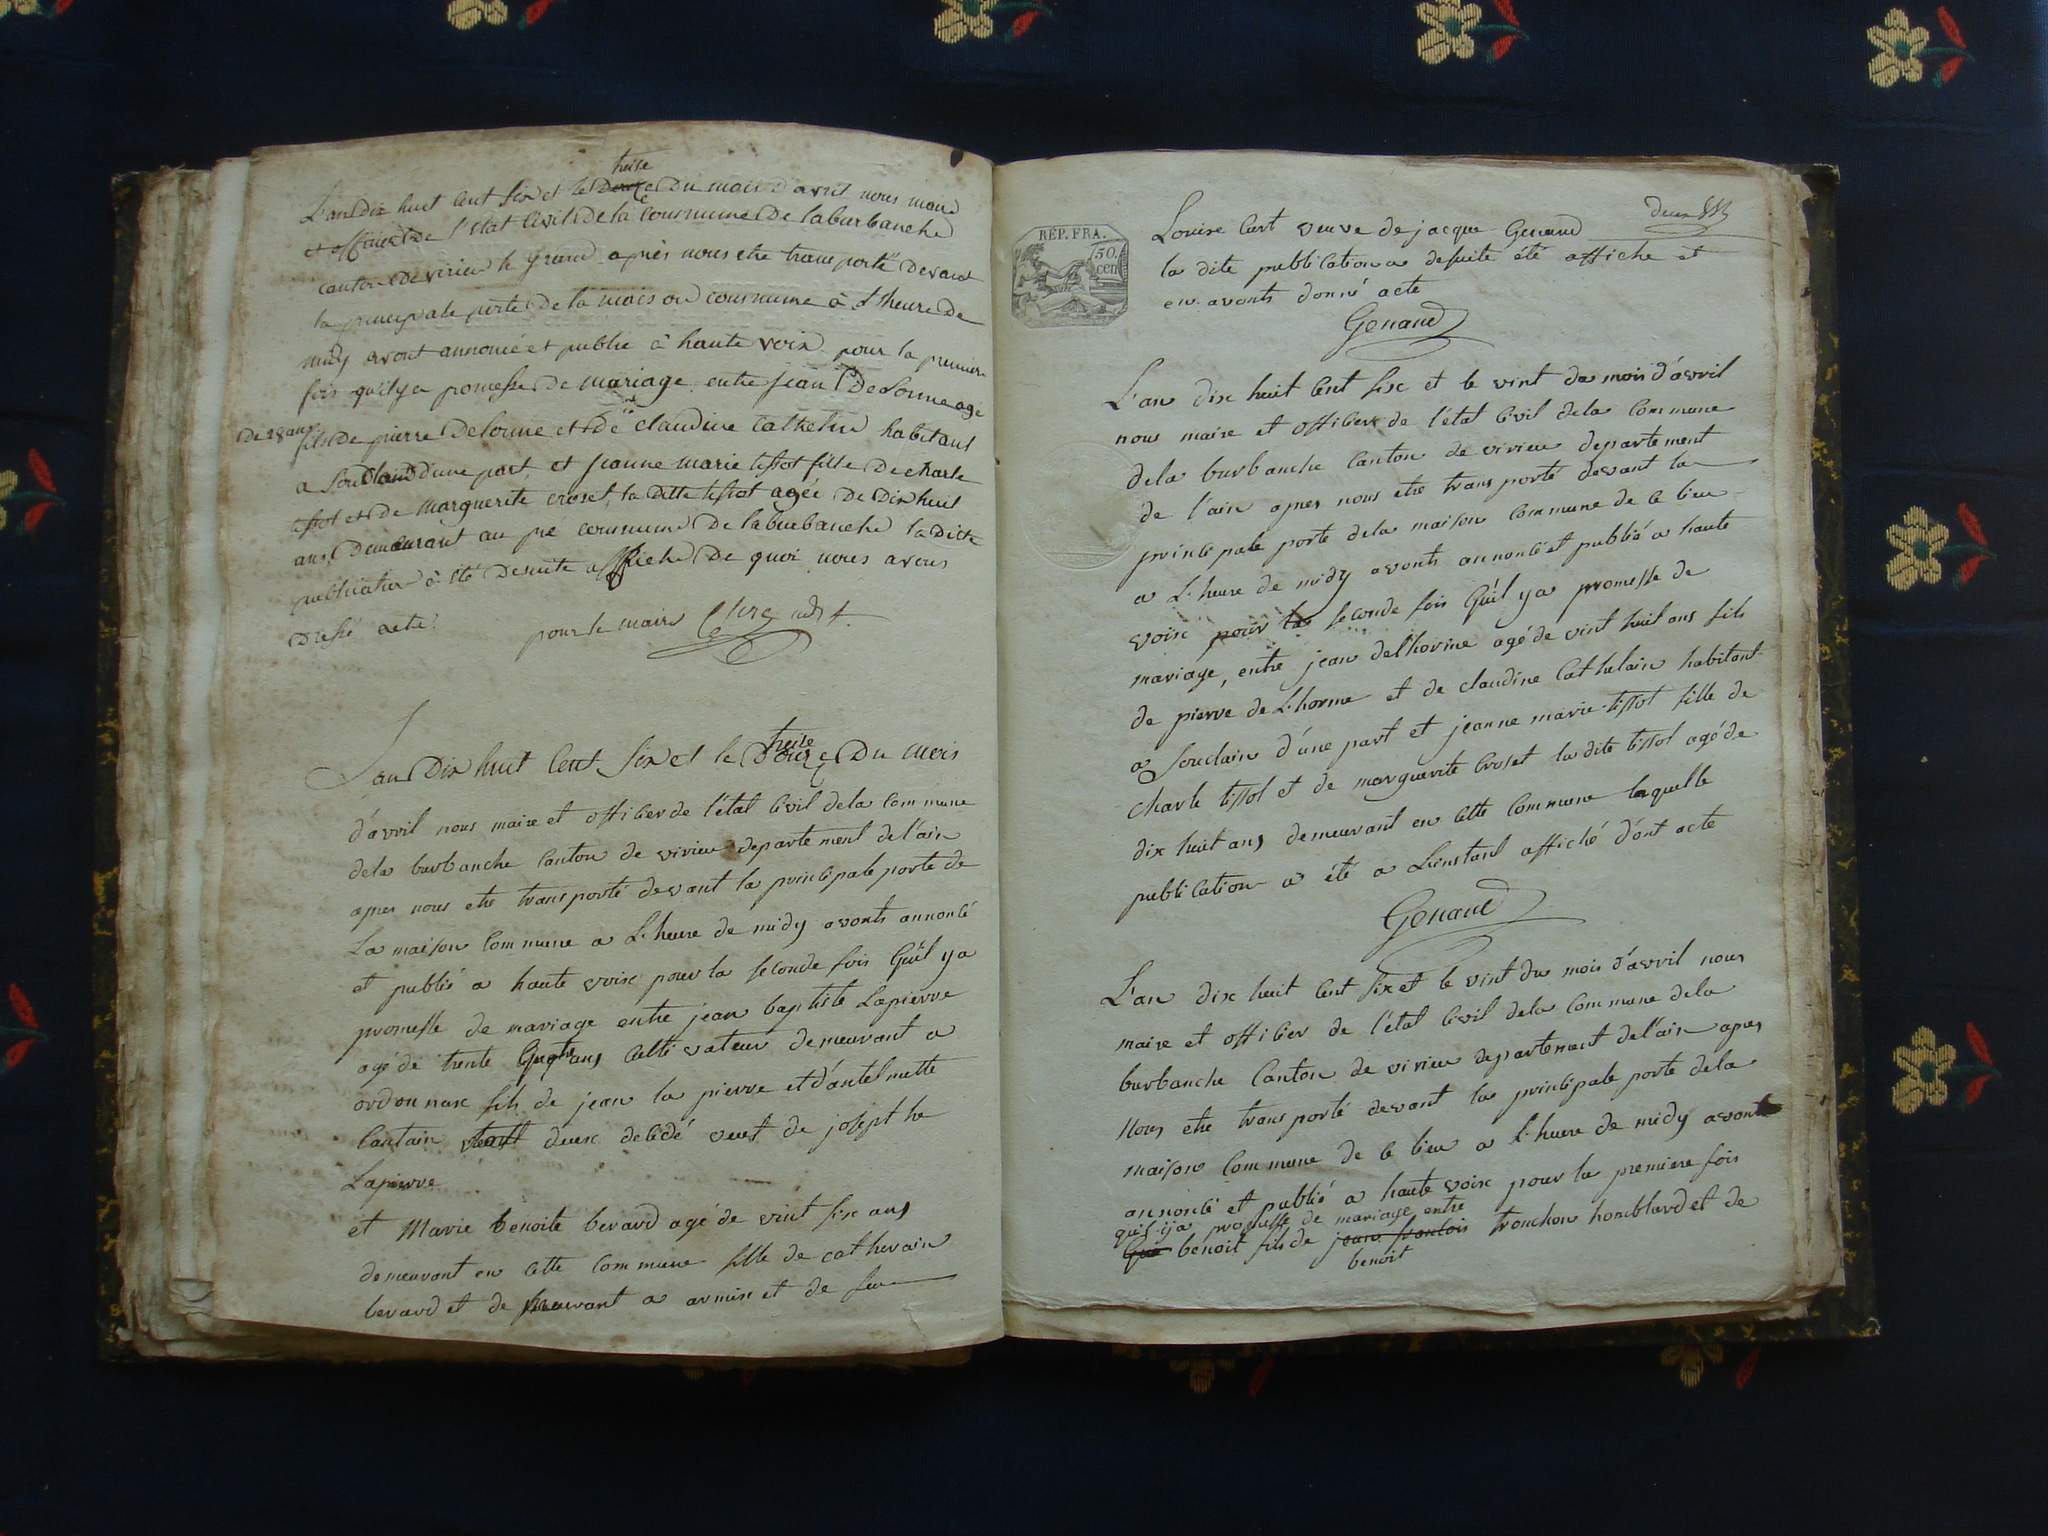 L'an dix huit cent six et le treize du mois d'avril nous maire
et officier de l'etat civil de la commune de laburbanche
canton de virieu le grand après nous etre transporté devant
la principale porte de la maison commune à l'heure de
midy avont annoncé et publié à haute voix pour la premiere
fois qu'il y a promesse de mariage entre jean Delorme agé
De 28 ans fils de pierre Delorme et de claudine Cathelin habitans
a Souclain d'une part et jeanne marie tissot fille de charle
tissot et de marguerite croset, la ditte tissot agée de dix huit
ans Demeurant au pré commune de laburbanche la dicte
publication à été desuite affiché de quoi nous avons
Dressé acte
pour le maire
L'an Dix huit cent six et le treize du mois
d'avril nous maire et officier de l'état civil dela commune
dela burbanche canton de virieu departement de l'ain
apres nous etre transporté devant la principale porte de
La maison commune a L'heure de midy avonts annoncé
et publié a haute voix pour la seconde fois Qu'il ya
promesse de mariage entre jean baptiste Lapierre
agé de trente Quatre ans cultivateur demeurant a
ordonnax fils de jean la pierre et d'antelmette
Cantain deux décédé veuf de josephte
Lapierre
et Marie benoite berard agé de vint six ans
demeurant en cette commune fille de catherain
berard et de demeurant a armix et de feu
deux
RÉP. FRA.
50 cen
Louise Curt veuve de jacque Genaud
la dite publication a desuite été affiche et
en avonts donné acte
Genaud
L'an dix huit cent six et le vint du mois d'avril
nous maire et officier de l'état civil dela commune
dela burbanche canton de virieu departement
de l'ain apres nous etre transporté devant la
principale porte dela maison commune de ce lieu
a L'heure de midy avonts annoncé et publié a haute
voix pour la seconde fois Qu'il ya promesse de
mariage, entre jean delhorme agé de vint huit ans fils
de pierre de Lhorme et de claudine Cathelain habitant
a Souclain d'une part et jeanne marie tissot fille de
charle tissot et de marguerite Croset la dite tissot agé de
dix huit ans demeurant en cette commune laquelle
publication a été a Linstant affiché d'ont acte
Genaud
L'an dix huit cent six et le vint du mois d'avril nous
maire et officier de l'état civil dela commune dela
burbanche Canton de virieu departement de l'ain apres
Nous etre transporté devant la principale porte dela
maison commune de ce lieu a L'heure de midy avonts
annoncé et publié a haute voix pour la premiere fois
qu'il ya promesse de mariage entre
Que benoit fils de jean francois tronchon homblard et de
benoit